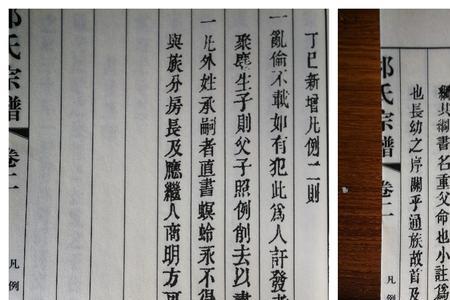 丁巳新增凡例二則
一亂倫不載如有犯此為人訐發者
聚麀生子則父子照例削去以
一凡外姓承嗣者直書螟蛉承不得
與族分房長及應繼人商明方
氏宗譜 卷二 凡例
綱書名重父命也小註爲
也長幼之序關乎通族故首及
氏宗譜 卷二 凡例